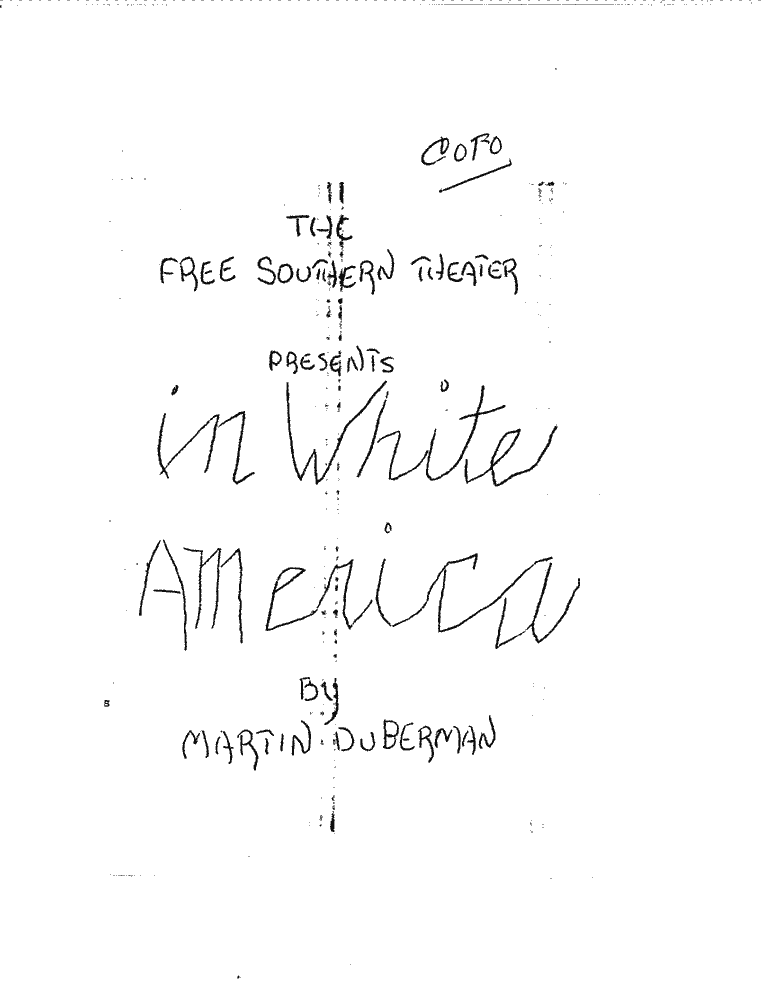 COFO
THE
FREE SOUTHERN THEATER
PRESENTS
in White
America
By
MARTIN DUBERMAN